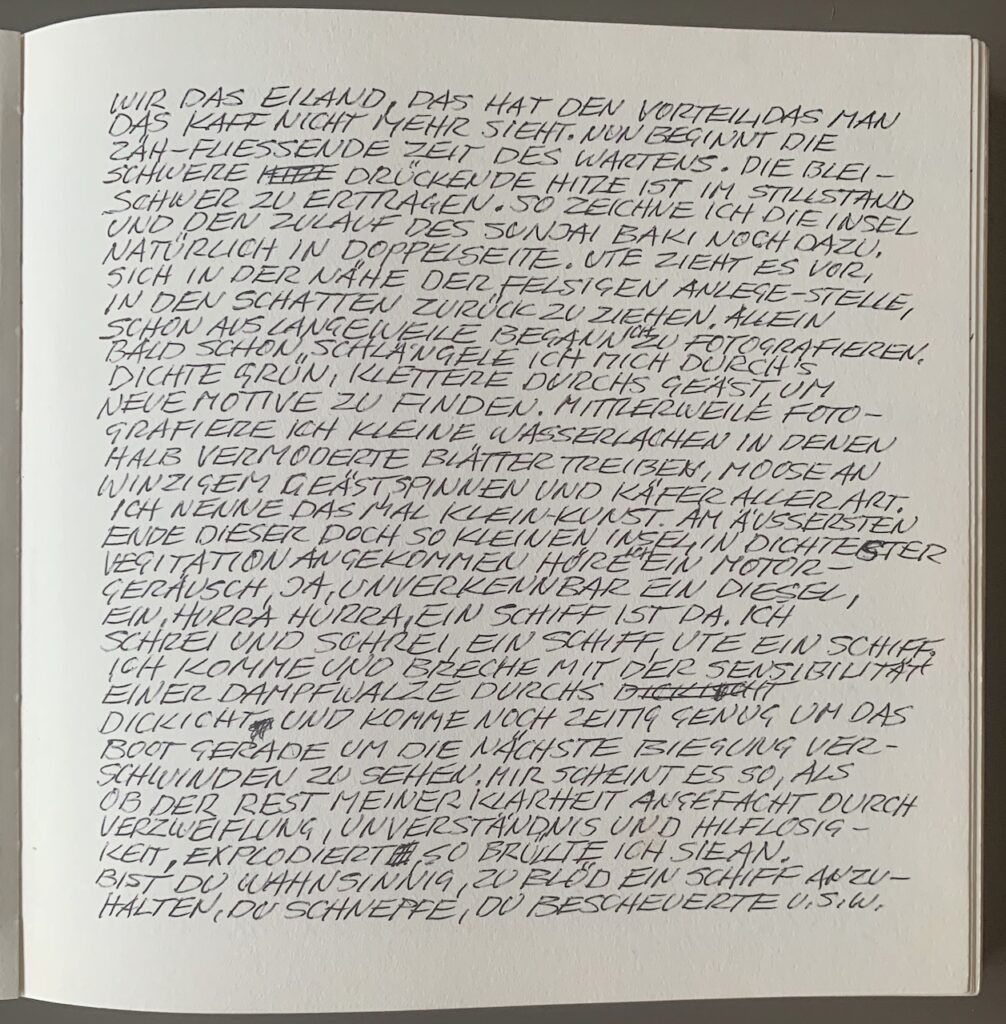 WIR DAS EILAND, DAS HAT DEN VORTEIL, DAS MAN
DAS KAFF NICHT MEHR SIEHT. NUN BEGINNT DIE
ZÄH-FLIESSENDE ZEIT DES WARTENS. DIE BLEI-
SCHWERE HITZE DRÜCKENDE HITZE IST IM STILLSTAND
SCHWER ZU ERTRAGEN. SO ZEICHNE ICH DIE INSEL
UND DEN ZULAUF DES SUNJAI BAKI NOCH DAZU.
NATÜRLICH IN DOPPELSEITE. UTE ZIEHT ES VOR,
SICH IN DER NÄHE DER FELSIGEN ANLEGE-STELLE,
IN DEN SCHATTEN ZURÜCK ZU ZIEHEN. ALLEIN
SCHON AUS LANGEWEILE BEGANN ICH ZU FOTOGRAFIEREN.
BALD SCHON, SCHLÄNGELE ICH MICH DURCH'S
DICHTE GRÜN, KLETTERE DURCHS GEÄST, UM
NEUE MOTIVE ZU FINDEN. MITTLERWEILE FOTO-
GRAFIERE ICH KLEINE WASSERLACHEN IN DENEN
HALB VERMODERTE BLÄTTER TREIBEN, MOOSE AN
WINZIGEM GEÄST SPINNEN UND KÄFER ALLER ART.
ICH NENNE DAS MAL KLEIN-KUNST. AM ÄUSSERSTEN
ENDE DIESER DOCH SO KLEINEN INSEL, IN DICHTESTER
VEGITATION ANGEKOMMEN HÖRE ICH EIN MOTOR-
GERÄUSCH, JA, UNVERKENNBAR EIN DIESEL,
EIN, HURRA HURRA, EIN SCHIFF IST DA. ICH
SCHREI UND SCHREI, EIN SCHIFF, UTE EIN SCHIFF,
ICH KOMME UND BRECHE MIT DER SENSIBILITÄT
EINER DAMPFWALZE DURCHS DICKICHT
DICKICHT UND KOMME NOCH ZEITIG GENUG UM DAS
BOOT GERADE UM DIE NÄCHSTE BIEGUNG VER-
SCHWINDEN ZU SEHEN. MIR SCHEINT ES SO, ALS
OB DER REST MEINER KLARHEIT ANGEFACHT DURCH
VERZWEIFLUNG, UNVERSTÄNDNIS UND HILFLOSIG-
KEIT, EXPLODIERT. SO BRÜLLTE ICH SIE AN.
BIST DU WAHNSINNIG, ZU BLÖD EIN SCHIFF ANZU-
HALTEN, DU SCHNEPFE, DU BESCHEUERTE U.S.W.